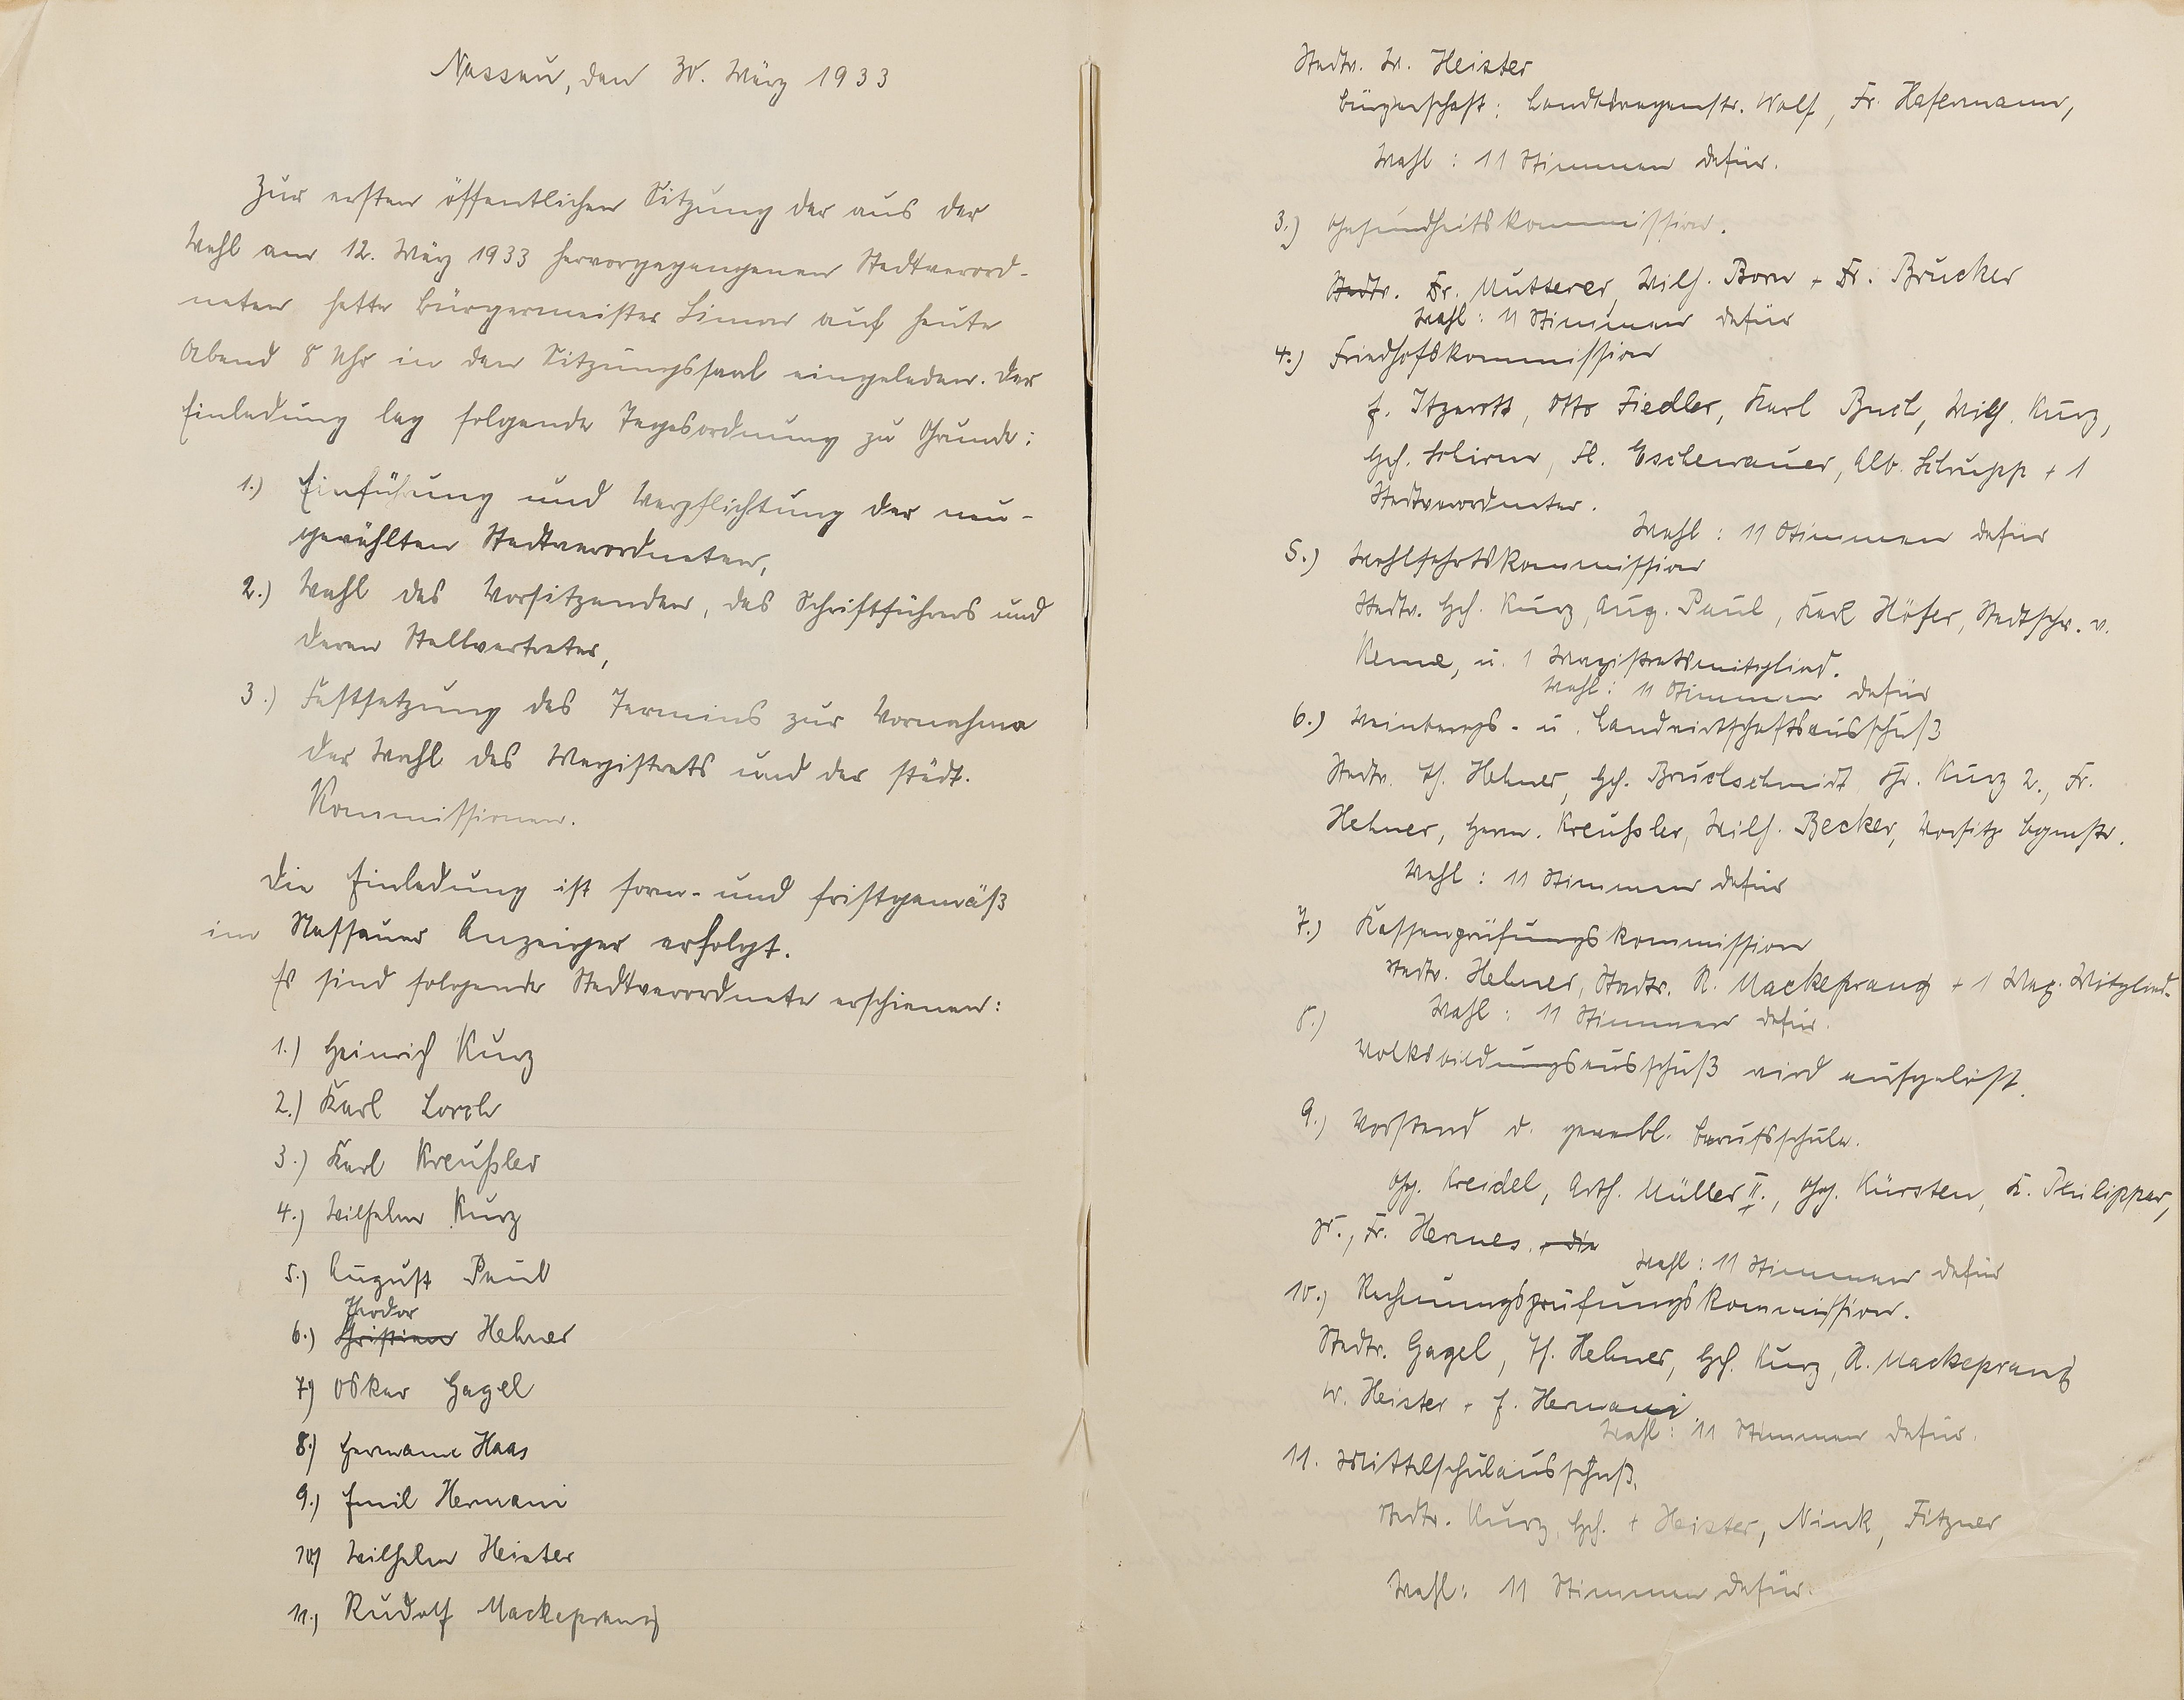 Nassau, den 30. März 1933
Zur ersten öffentlichen Sitzung der aus der
Wahl am 12. März 1933 hervorgegangenen Stadtverord-
neten hatte Bürgermeister Limar auf heute
Abend 8 Uhr in den Sitzungssaal eingeladen. Der
Einladung lag folgende Tagesordnung zu Grunde:
1.) Einführung und Verpflichtung der neu-
gewählten Stadtverordneten,
2.) Wahl des Vorsitzenden, des Schriftführers und
deren Stellvertreter,
3.) Festsetzung des Termins zur Vornahme
der Wahl des Magistrats und der städt.
Kommissionen.
Die Einladung ist form- und fristgemäß
im Nassauer Anzeiger erfolgt.
Es sind folgende Stadtverordnete erschienen:
1.) Heinrich Kurz
2.) Karl Lorch
3.) Karl Kreußler
4.) Wilhelm Kurz
5.) August Paul
Theodor
6.) Christian Hehner
7.) Oskar Gagel
8.) Hermann Haas
9.) Emil Hermani
10.) Wilhelm Heister
11.) Rudolf Mackeprang
Stadtv. W. Heister
Bürgerschaft: Wolf, Fr. Hafermann,
Wahl: 11 Stimmen dafür.
3.) Gesundheitskommission.
Stadtv. Dr. Mutterer, Wilh. Born + Dr. Brucker
Wahl: 11 Stimmen dafür
4.) Friedhofskommission
E. Itzerott, Otto Fiedler, Karl Buch, Wilh. Kurz,
Hch. Schirm, Fl. Eschenauer, Alb. Schrupp + 1
Stadtverordneter.
Wahl: 11 Stimmen dafür
5.) Wohlfahrtskommission
Stadtv. Hch. Kurz, Aug. Paul, Karl Höfer, Stadtschw. v.
u. 1 Magistratsmitglied.
Wahl: 11 Stimmen dafür
6.) Weinbergs- u. Landwirtschaftsausschuß
Stadtv. Th. Hehner, Hch. Bruchschmidt, Chr. Kurz 2., Fr.
Hehner, Herm. Kreußler, Wilh. Becker, Vorsitz Bgmstr.
Wahl: 11 Stimmen dafür
7.) Kassenprüfungskommission
Stadtv. Hehner, Stadtv. R. Mackeprang + 1 Mag. Mitglied.
Wahl: 11 Stimmen dafür.
8.)
Volksbildungsausschuß wird aufgelöst.
9.) Vorstand d. gewerbl. Berufsschule.
Chr. Kreidel, Arth. Müller II., Chr. Kürsten, K. Philippar,
jr., Fr. Hermes. + die
Wahl: 11 Stimmen dafür
10.) Rechnungsprüfungskommission.
Stadtv. Gagel, Th. Hehner, Hch. Kurz, R. Mackeprang
W. Heister + E. Hermani
Wahl: 11 Stimmen dafür.
11. Mittelschulausschuß.
Stadtv. Kurz, Hch. + Heister, Nink, Fitzner
Wahl: 11 Stimmen dafür.